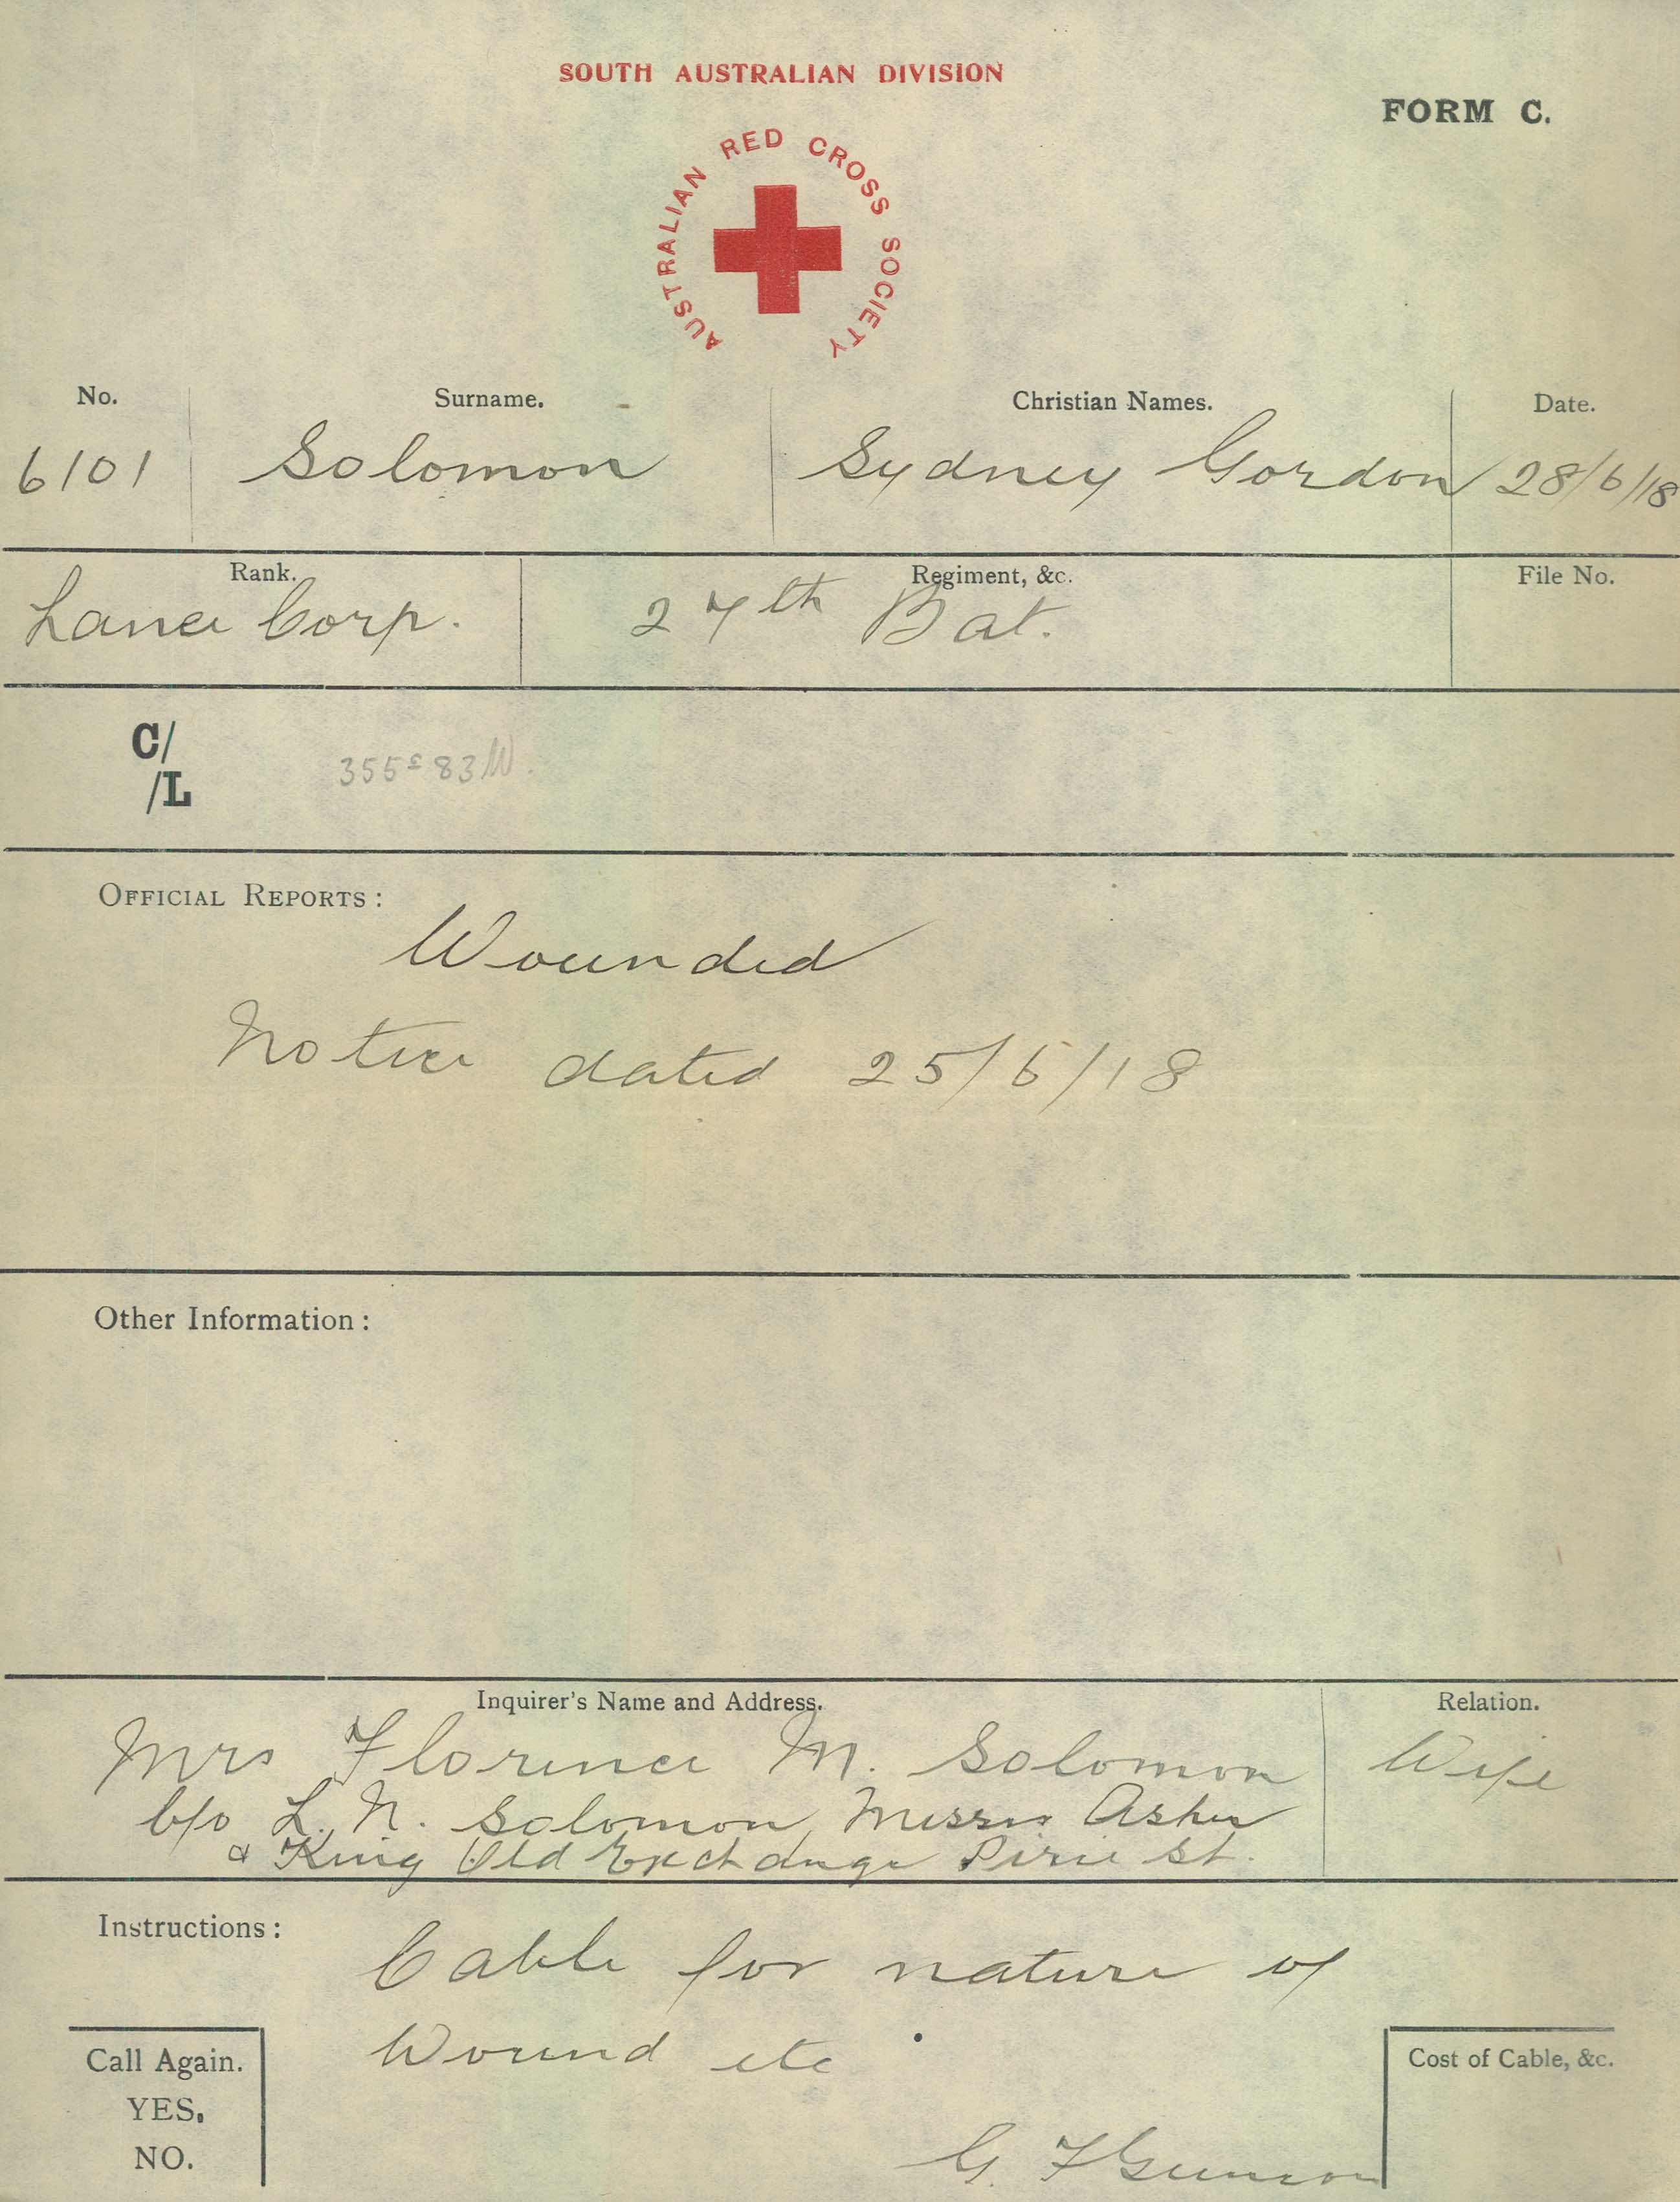 SOUTH AUSTRALIAN DIVISION
FORM C.
AUSTRALIAN RED CROSS SOCIETY
No. Surname. Christian Names. Date.
6101 Solomon Sydney Gordon 28/6/18
Rank. Regiment, &c. File No.
Lance Corp. 27th Bat.
C/
/L
355 83 W.
OFFICIAL REPORTS:
Wounded
Notice dated 25/6/18
Other Information:
Inquirer's Name and Address. Relation.
Mrs Florence M. Solomon Wife
C/o L. N. Solomon, Messrs Asher
& King Old Exchange Pirie St.
Instructions:
Cable for nature of
Wound etc
Call Again.
YES.
NO.
Cost of Cable, &c.
G. F